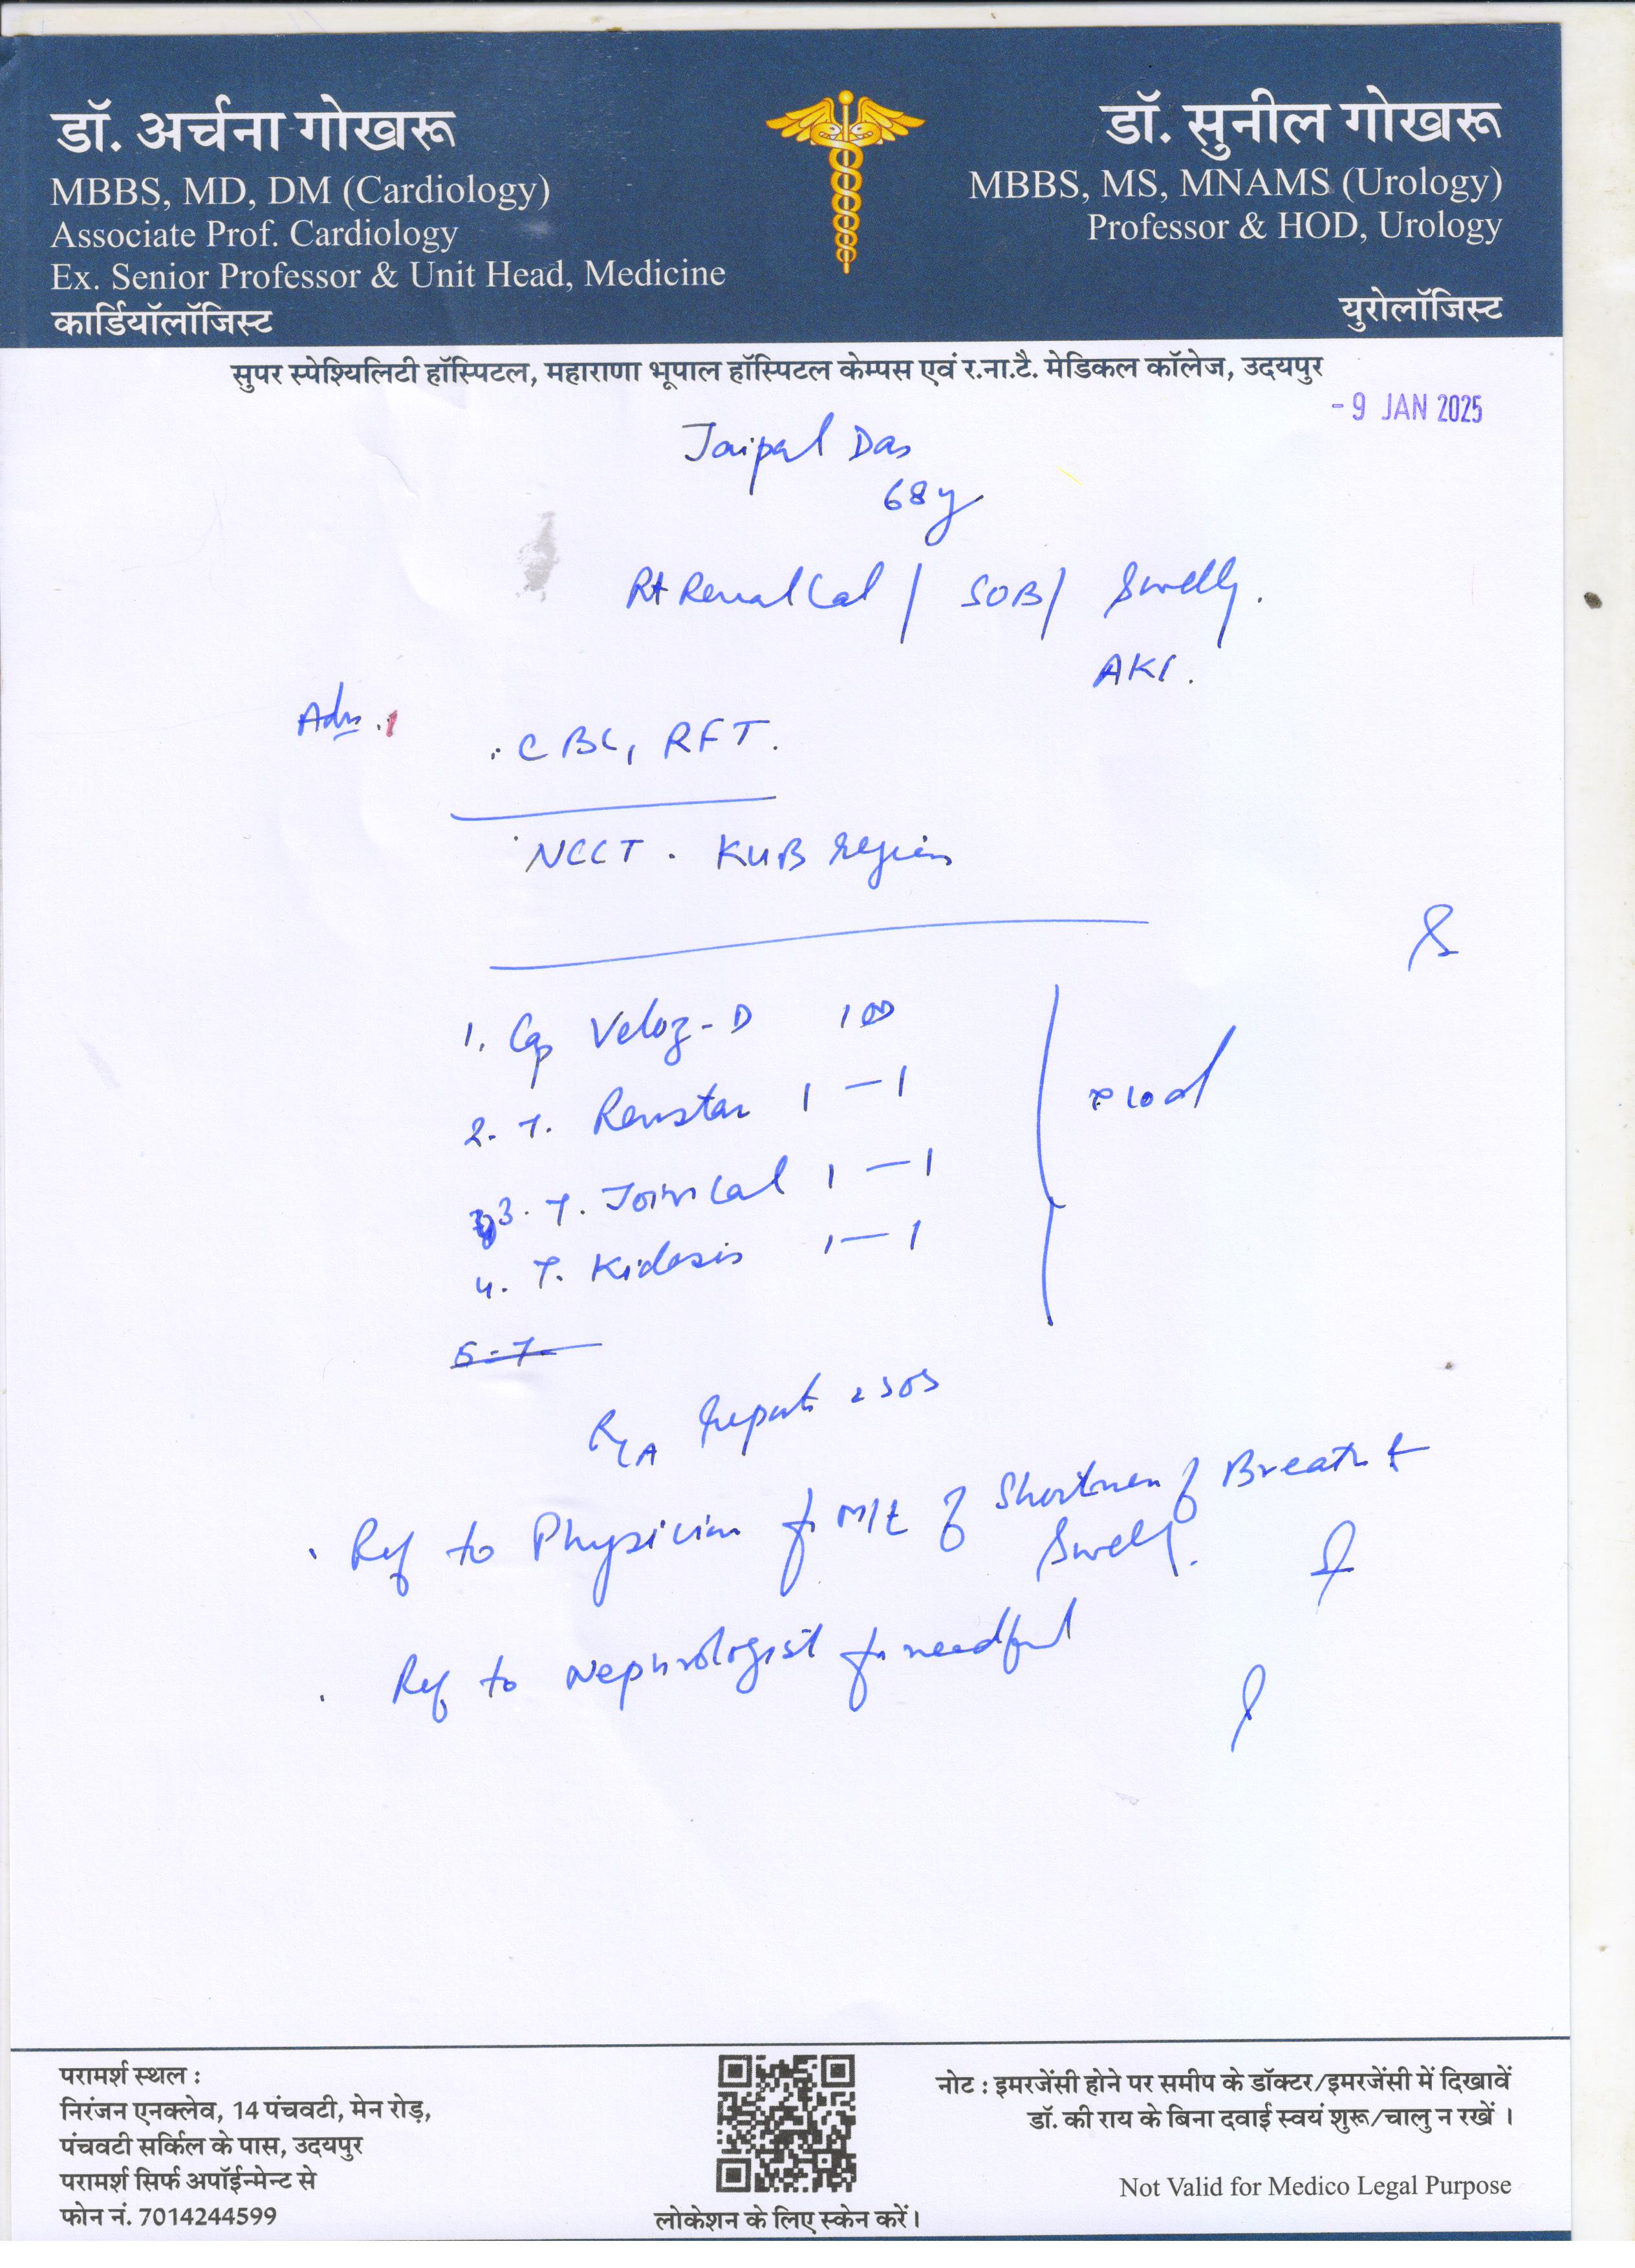 डॉ. अर्चना गोखरू
MBBS, MD, DM (Cardiology)
Associate Prof. Cardiology
Ex. Senior Professor & Unit Head, Medicine
कार्डियॉलॉजिस्ट
डॉ. सुनील गोखरू
MBBS, MS, MNAMS (Urology)
Professor & HOD, Urology
युरोलॉजिस्ट
सुपर स्पेश्यिलिटी हॉस्पिटल, महाराणा भूपाल हॉस्पिटल केम्पस एवं र.ना.टै. मेडिकल कॉलेज, उदयपुर
- 9 JAN 2025
Jaipal Das
68y
Rt Renal Cal / SOB / Swellg.
AKI.
Adv. 1
CBC, RFT.
NCCT. KUB region
1. Cap Veloz-D 1 OD
2. T. Renstar 1 — 1
3. T. 1 — 1
4. T. Kidosis 1 — 1
x 10 d
5. T.
Reports SOS
Ref to Physician f M/t of Shortness of Breath &
Swellg.
Ref to Nephrologist for needful
परामर्श स्थल :
निरंजन एनक्लेव, 14 पंचवटी, मेन रोड़,
पंचवटी सर्किल के पास, उदयपुर
परामर्श सिर्फ अपॉईन्मेन्ट से
फोन नं. 7014244599
लोकेशन के लिए स्केन करें।
नोट : इमरजेंसी होने पर समीप के डॉक्टर/इमरजेंसी में दिखावें
डॉ. की राय के बिना दवाई स्वयं शुरू/चालु न रखें ।
Not Valid for Medico Legal Purpose